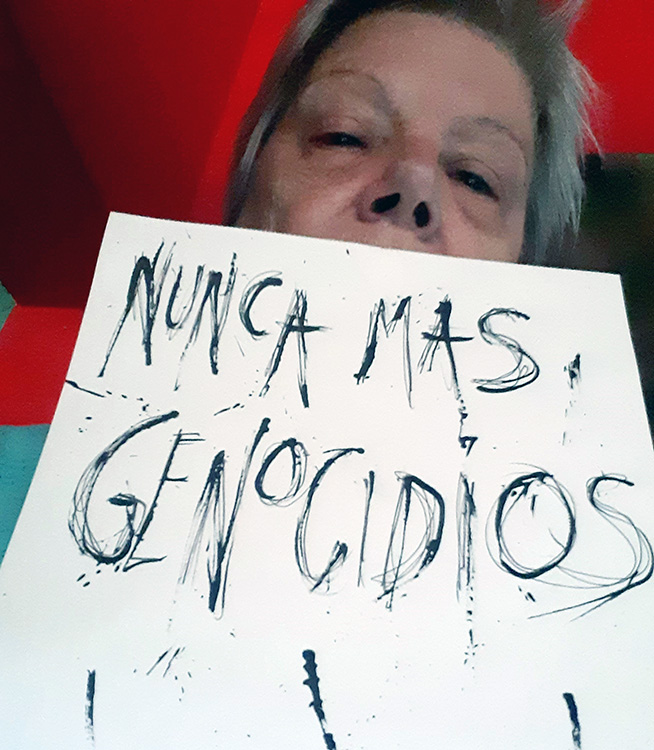 NUNCA MAS
GENOCIDIOS